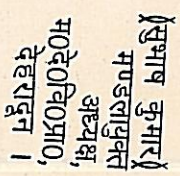 (सुभाष कुमार)
मण्डलायुक्त
अध्यक्ष,
म०दे०वि०प्रा०,
देहरादून ।